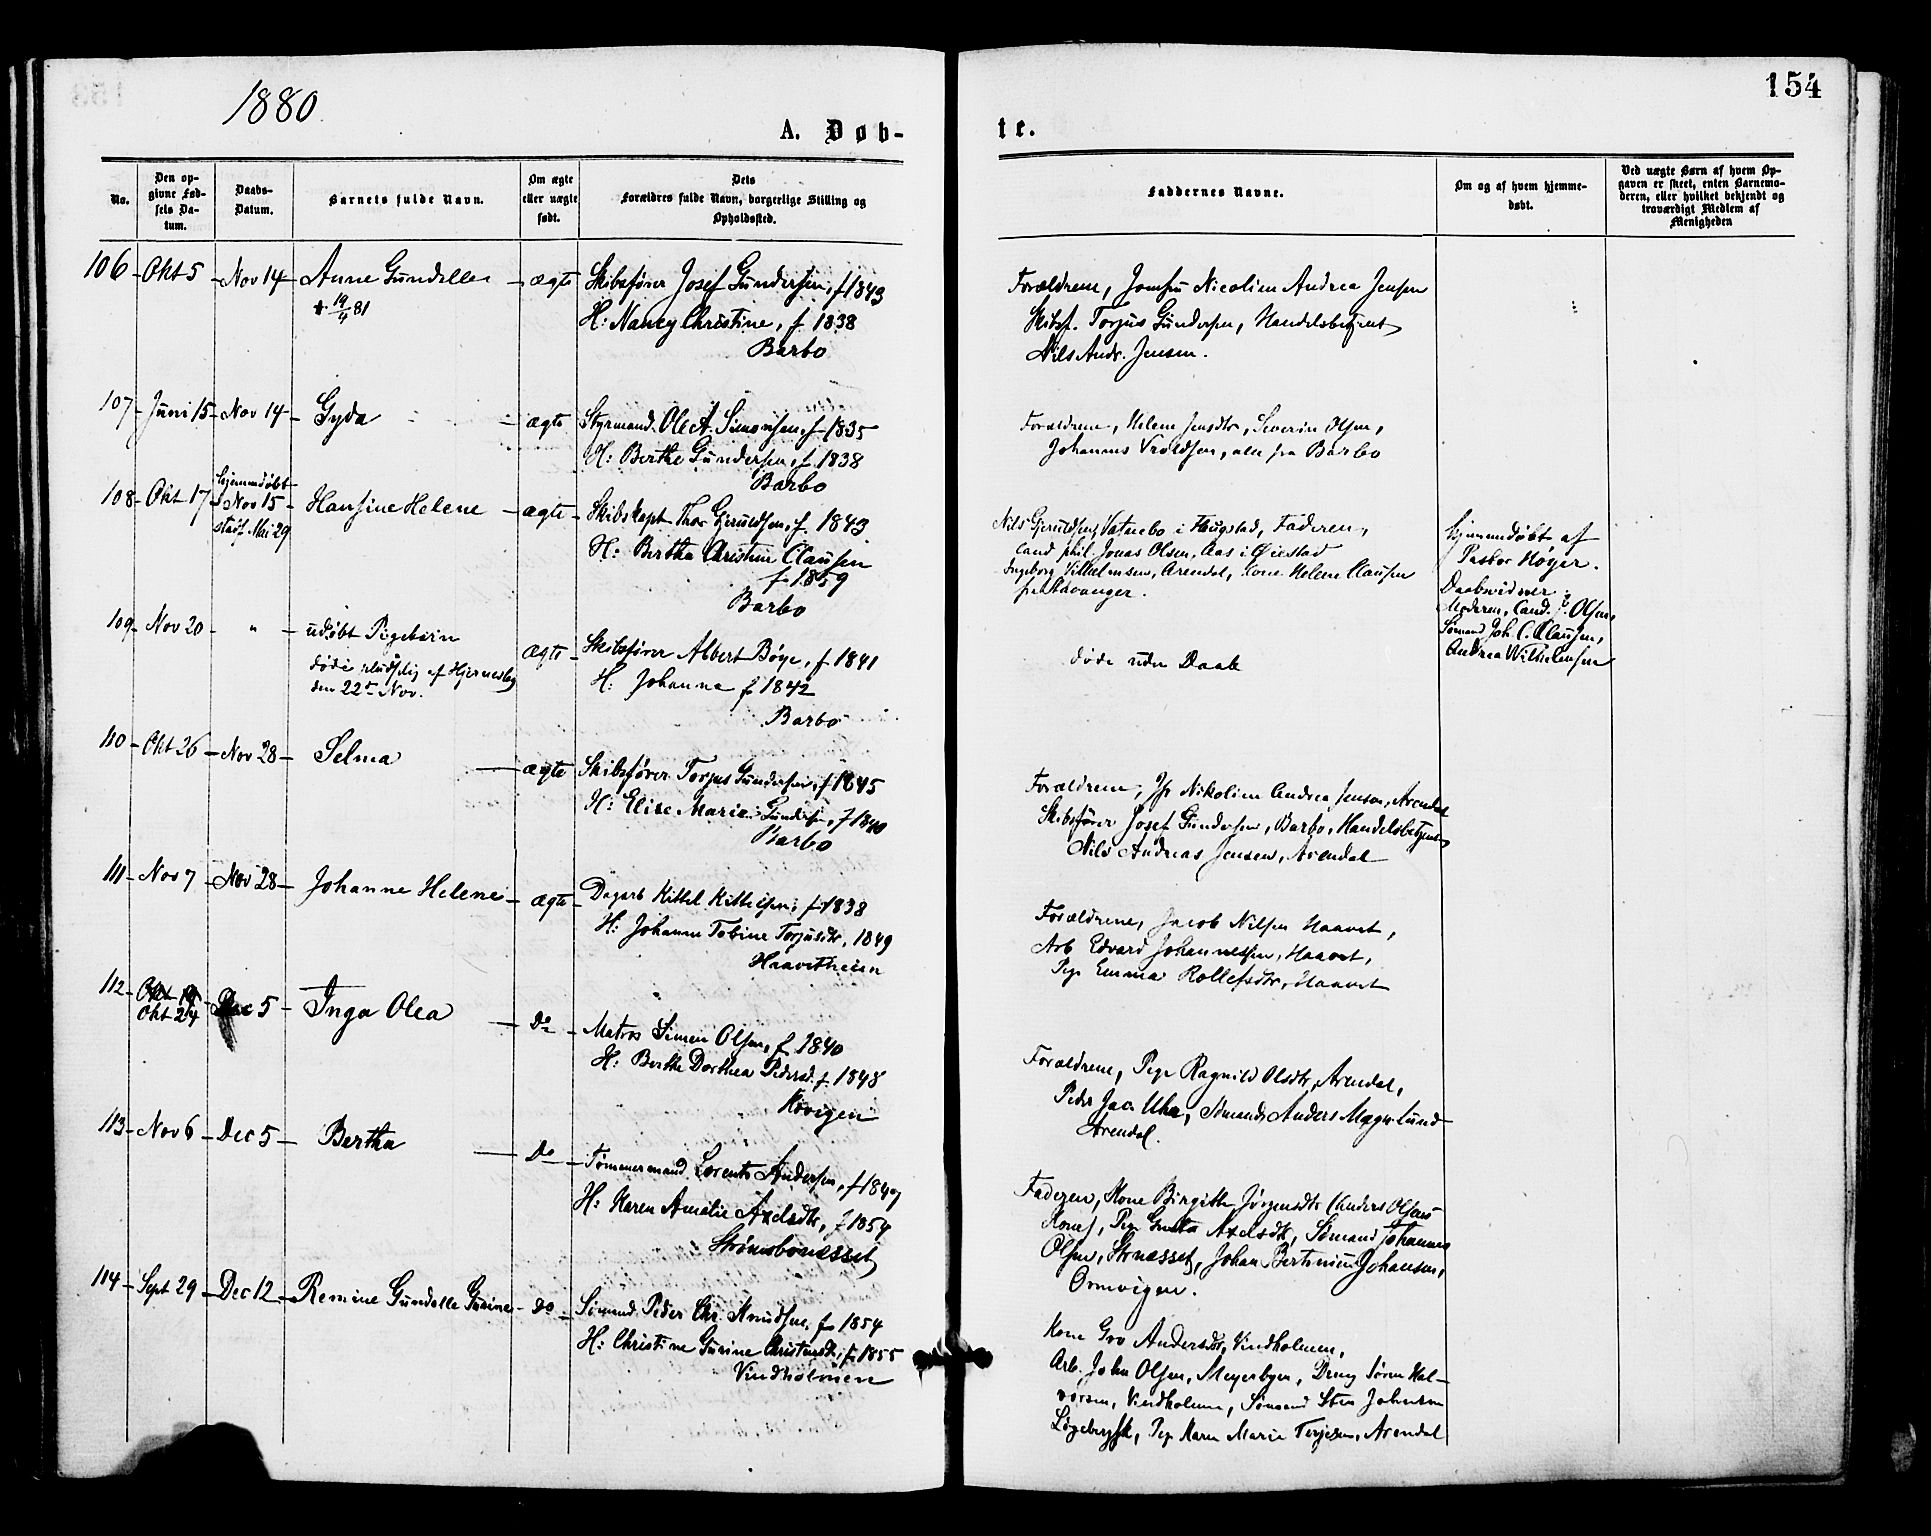 1880.
154
A. Døb-
te.
No.
Den op-
givne Fød-
sels Da-
tum.
Daabs-
Datum.
Barnets fulde Navn.
Om ægte
eller uægte
født.
Dets
Forældres fulde Navn, borgerlige Stilling og
Opholdssted.
Faddernes Navne.
Om og af hvem hjemme-
døbt.
Ved uægte Børn af hvem Op-
gaven er skeet, enten Barnemo-
deren, eller hvilket bekjendt og
troværdigt Medlem af
Menigheden
106 - Okt 5 - Nov 14 - Anne Gundelle - ægte
19/4 81
Skibsfører Josef Gundersen, f 1843
H: Nancy Christine, f 1838
Barbo
Forældrene, Jomfru Nicoline Andrea Jensen
Skibsf. Torjus Gundersen, Handelsbetjent
Nils Andr. Jensen.
107 - Juni 15 - Nov 14 - Gyda - ægte
Styrmand Ole A. Simonsen, f 1835
H: Berthe Gundersen, f. 1838
Barbo
Forældrene, Helene Jensdtr, Severin Olsen,
Johannes Troldsen, alle fra Barbo
108 - Okt 17 - Hjemmedøbt
Nov 15
stadf. Mai 29
Hansine Helene - ægte
Skibskapt Thor Gjeruldsen, f. 1843
H: Bertha Christine Clausen
f. 1859
Barbo
Nils Gjeruldsen, Vatnebo i Flugstad, Faderen,
Cand phil. Jonas Olsen, Aas i Øiestad
Ingeborg Vilhelmsen, Arendal, Kone Helene Clausen
fra Stavanger.
Hjemmedøbt af
Pastor Høyer.
Daabsvidner:
Moderen, Cand. P. Olsen,
Sømand Joh. C. Clausen,
Andrea Wilhelmsen
109 - Nov 20 - " - udøbt Pigebarn
døde pludselig af Hjerneslag
den 22de Nov.
ægte - Skibsfører Albert Bøye, f. 1841
H: Johanne f 1842
Barbo
døde uden Daab
110 - Okt 26 - Nov 28 - Selma - ægte
Skibsfører Torjus Gundersen, f 1845
H: Elise Marie Gundersen, f 1840
Barbo
Forældrene, Jfr Nikoline Andrea Jensen, Arendal
Skibsfører Josef Gundersen, Barbo, Handelsbetjent
Nils Andreas Jensen, Arendal
111 - Nov 7 - Nov 28 - Johanne Helene - ægte
Dagarb Kittel Kittelsen, f 1838
H: Johanne Tobine Torjusdtr, 1849
Haavetheien
Forældrene, Jacob Nilsen Haavet,
Arb Edvard Johannessen, Haavet,
Pige Emma Rollefsdtr, Haavet
112 - Okt 24 - Dec 5 - Inga Olea - Do
Matros Simen Olsen, f 1840
H: Berthe Dorthea Pedersd. f. 1848
Kovigen
Forældrene, Pige Ragnild Olsdtr, Arendal,
Peder Jac. Uhr, Sømand Anders Magn. Lund
Arendal.
113 - Nov 6 - Dec 5 - Bertha - Do
Tømmermand Lorents Andersen, f 1847
H: Karen Amalie Axelsdtr, f 1854
Strømsbonæsset
Faderen, Kone Birgitte Jørgensdtr (Anders Olsens
Kone), Pige Axelsdtr, Sømand Johannes
Olsen, Strnæsset, Johan Bertinius Johansen,
Ormvigen.
114 - Sept 29 - Dec 12 - Remine Gundelle Gurine - Do
Sømand Peder Chr. Knudsen, f 1854
H: Christine Gurine Christensdtr, f. 1855
Vindholmen
Kone Gro Andersdtr, Vindholmen,
Arb. John Olsen, Meyerbyen, Dreng Søren Hal-
vorsen, Vindholmen, Sømand Sten Johnsen
Pige Karen Marie Terjesen, Arendal